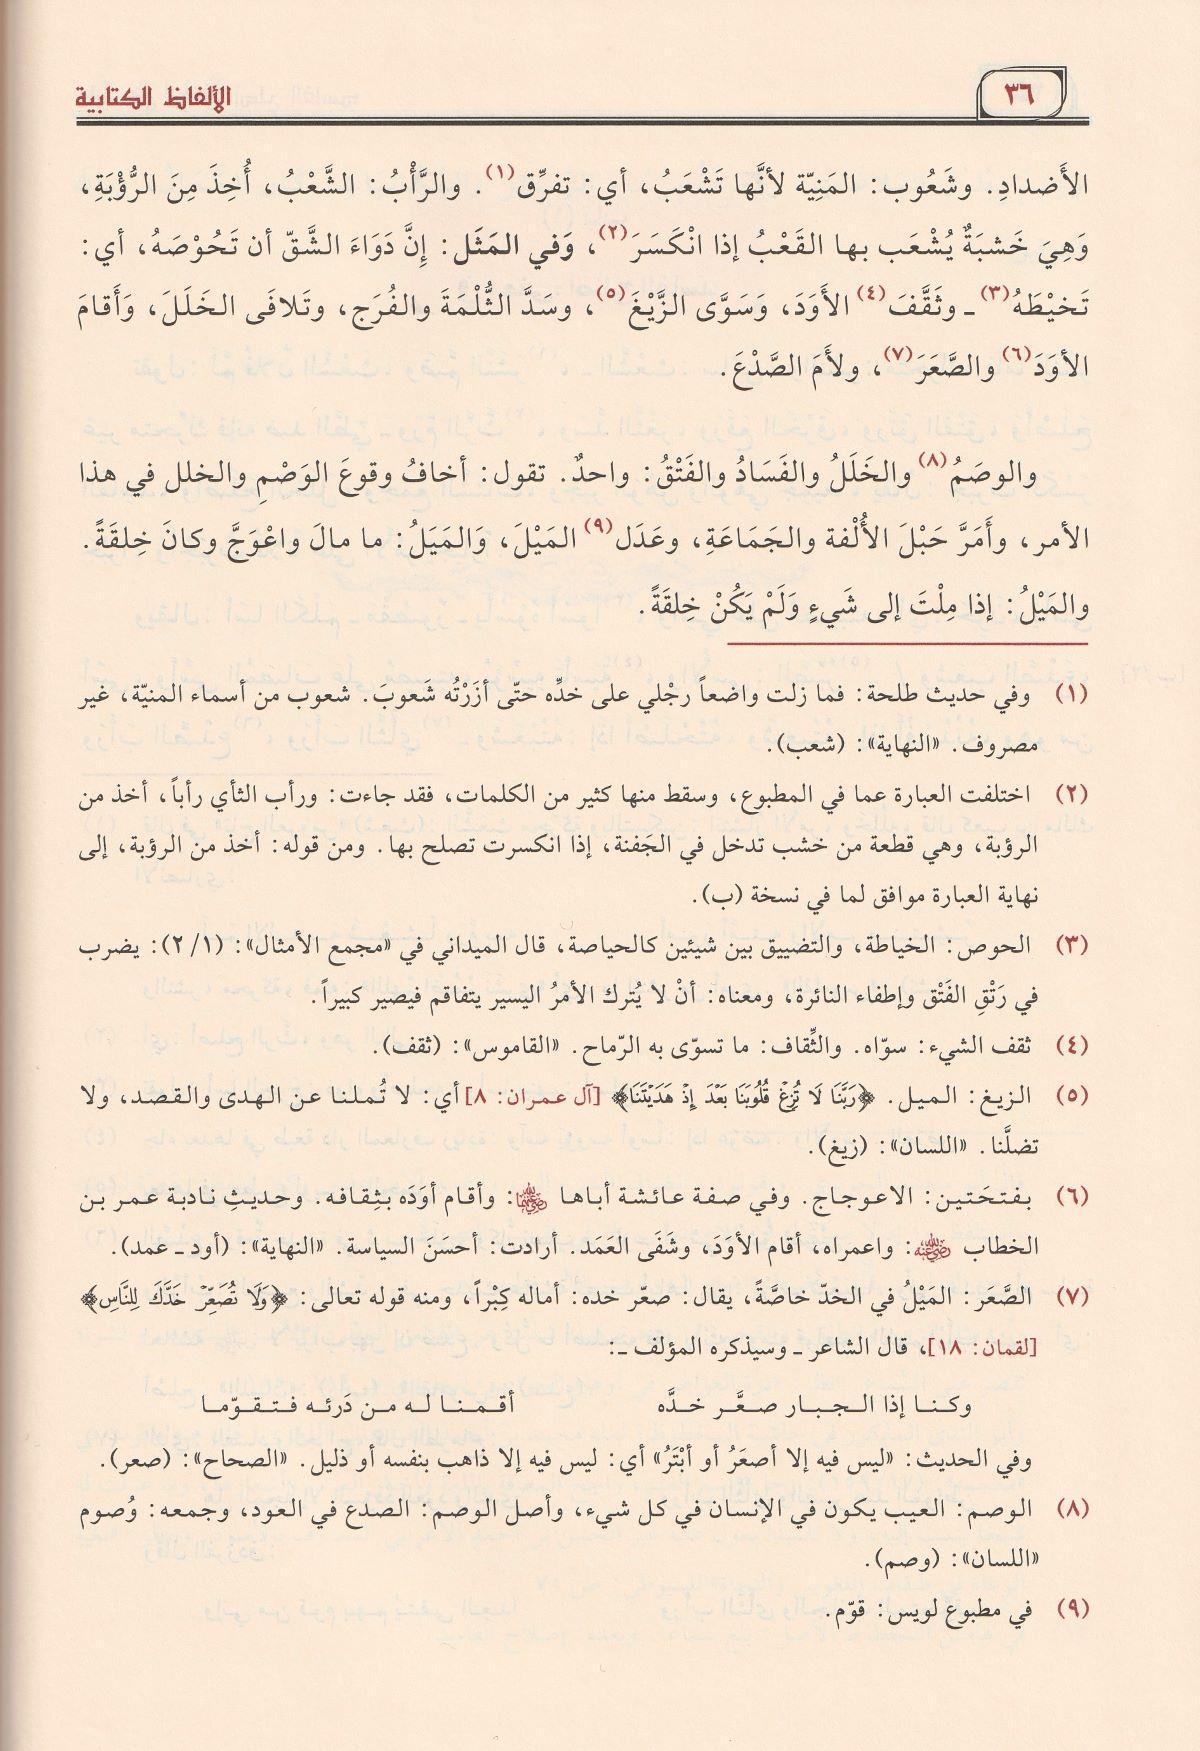 ٣٦
الألفاظ الكتابية
الأَضدادِ. وشَعُوب: المَنِيّة لأنَّها تَشْعَبُ، أي: تفرِّق(١). والرَّأْبُ: الشَّعْبُ، أُخِذَ مِنَ الرُّؤْبَةِ،
وَهِيَ خَشبَةٌ يُشْعَب بها القَعْبُ إذا انْكَسَرَ(٢)، وَفي المَثَل: إنَّ دَوَاءَ الشَّقّ أن تَحُوْصَهُ، أي:
تَخيْطَهُ(٣) ـ وثَقَّفَ(٤) الأَوَدَ، وَسَوَّى الزَّيْغَ(٥)، وسَدَّ الثُّلْمَةَ والفُرَج، وتَلافَى الخَلَلَ، وَأَقامَ
الأوَدَ(٦) والصَّعَرَ(٧)، ولأمَ الصَّدْعَ.
والوصَمُ(٨) والخَلَلُ والفَسَادُ والفَتْقُ: واحدٌ. تقول: أخافُ وقوعَ الوَصْمِ والخلل في هذا
الأمر، وأَمَرَّ حَبْلَ الأُلْفة والجَمَاعَةِ، وعَدَل(٩) المَيْلَ، وَالمَيَلُ: ما مالَ واعْوَجَّ وكانَ خِلقَةً.
والمَيْلُ: إذا مِلْتَ إلى شَيءٍ وَلَمْ يَكُنْ خِلقَةً.
(١) وفي حديث طلحة: فما زلت واضعاً رِجْلي على خدِّه حتّى أزَرْتُه شَعوبَ. شعوب من أسماء المنيّة، غير
مصروف. «النهاية»: (شعب).
(٢) اختلفت العبارة عما في المطبوع، وسقط منها كثير من الكلمات، فقد جاءت: ورأب الثأي رأباً، أخذ من
الرؤبة، وهي قطعة من خشب تدخل في الجَفنة، إذا انكسرت تصلح بها. ومن قوله: أخذ من الرؤبة، إلى
نهاية العبارة موافق لما في نسخة (ب).
(٣) الحوص: الخياطة، والتضييق بين شيئين كالحياصة، قال الميداني في «مجمع الأمثال»: (٢/١): يضرب
في رَتْقِ الفَتْق وإطفاء النائرة، ومعناه: أنْ لا يُترك الأمرُ اليسير يتفاقم فيصير كبيراً.
(٤) ثقف الشيء: سوّاه. والثِّقاف: ما تسوّى به الرّماح. «القاموس»: (ثقف).
(٥) الزيغ: الميل. ﴿رَبَّنَا لَا تُزِغْ قُلُوبَنَا بَعْدَ إِذْ هَدَيْتَنَا﴾ [آل عمران: ٨] أي: لا تُملنا عن الهدى والقصد، ولا
تضلَّنا. «اللسان»: (زيغ).
(٦) بفتحَتين: الاعوجاج. وفي صفة عائشة أباها رضي الله عنهما: وأقام أوَدَه بثِقافه. وحديثِ نادبة عمر بن
الخطاب رضي الله عنه: واعمراه، أقام الأوَدَ، وشَفَى العَمَد. أرادت: أحسَنَ السياسة. «النهاية»: (أود ـ عمد).
(٧) الصَّعَر: المَيْلُ في الخدّ خاصَّةً، يقال: صعّر خده: أماله كِبْراً، ومنه قوله تعالى: ﴿وَلَا تُصَعِّرْ خَدَّكَ لِلنَّاسِ﴾
[لقمان: ١٨]، قال الشاعر ـ وسيذكره المؤلف ـ:
وكنا إذا الجبار صعَّر خدَّه أقمنا له من دَرئه فتقوّما
وفي الحديث: «ليس فيه إلا أصعَرُ أو أبْتَرُ» أي: ليس فيه إلا ذاهب بنفسه أو ذليل. «الصحاح»: (صعر).
(٨) الوصم: العيب يكون في الإنسان في كل شيء، وأصل الوصم: الصدع في العود، وجمعه: وُصوم
«اللسان»: (وصم).
(٩) في مطبوع لويس: قوّم.